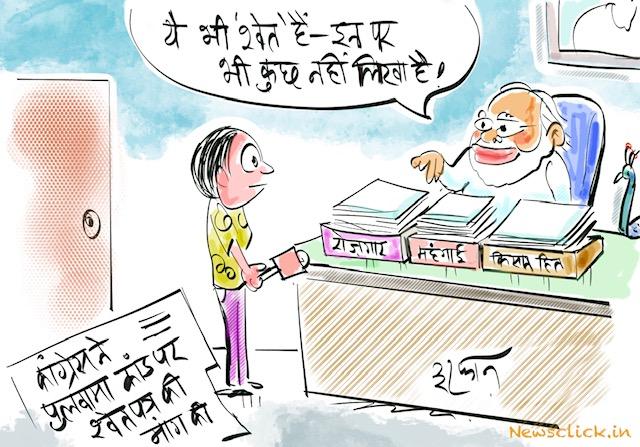 ये भी 'श्वेत' हैं - इन पर
भी कुछ नहीं लिखा है!
रोज़गार
महंगाई
किसान हित
कांग्रेस ने
पुलवामा कांड पर
श्वेतपत्र की
मांग की
इरफ़ान
Newsclick.in